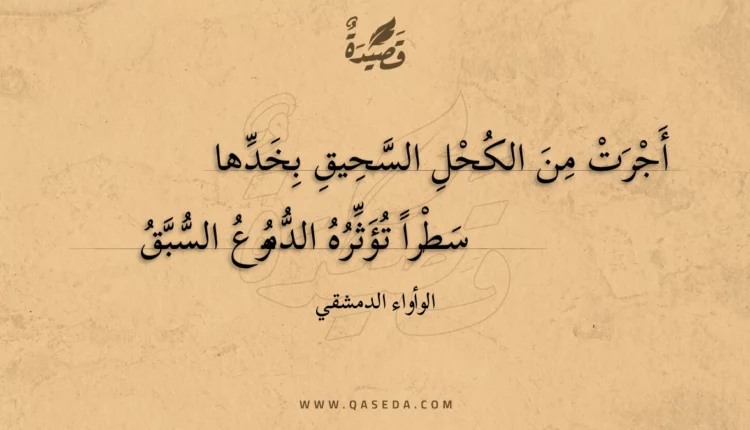 قَصِيدَةٌ
أَجْرَتْ مِنَ الكُحْلِ السَّحِيقِ بِخَدِّها
سَطْراً تُؤَثِّرُهُ الدُّمُوعُ السُّبَّقُ
الوأواء الدمشقي
WWW.QASEDA.COM